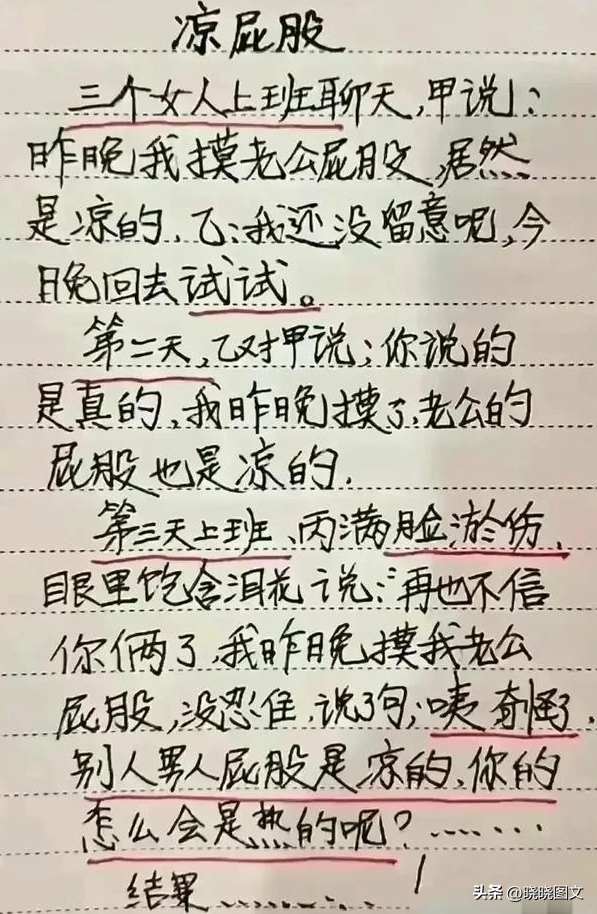 凉屁股
三个女人上班聊天,甲说:
昨晚我摸老公屁股,居然
是凉的,乙:我还没留意呢,今
晚回去试试。
第二天,乙对甲说:你说的
是真的,我昨晚摸了,老公的
屁股也是凉的.
第三天上班、丙满脸淤伤,
眼里饱含泪花说:"再也不信
你俩了,我昨晚摸我老公
屁股,没忍住,说了句;咦奇怪了,
别人男人屁股是凉的,你的
怎么会是热的呢?......
结果............
头条 @晓晓图文